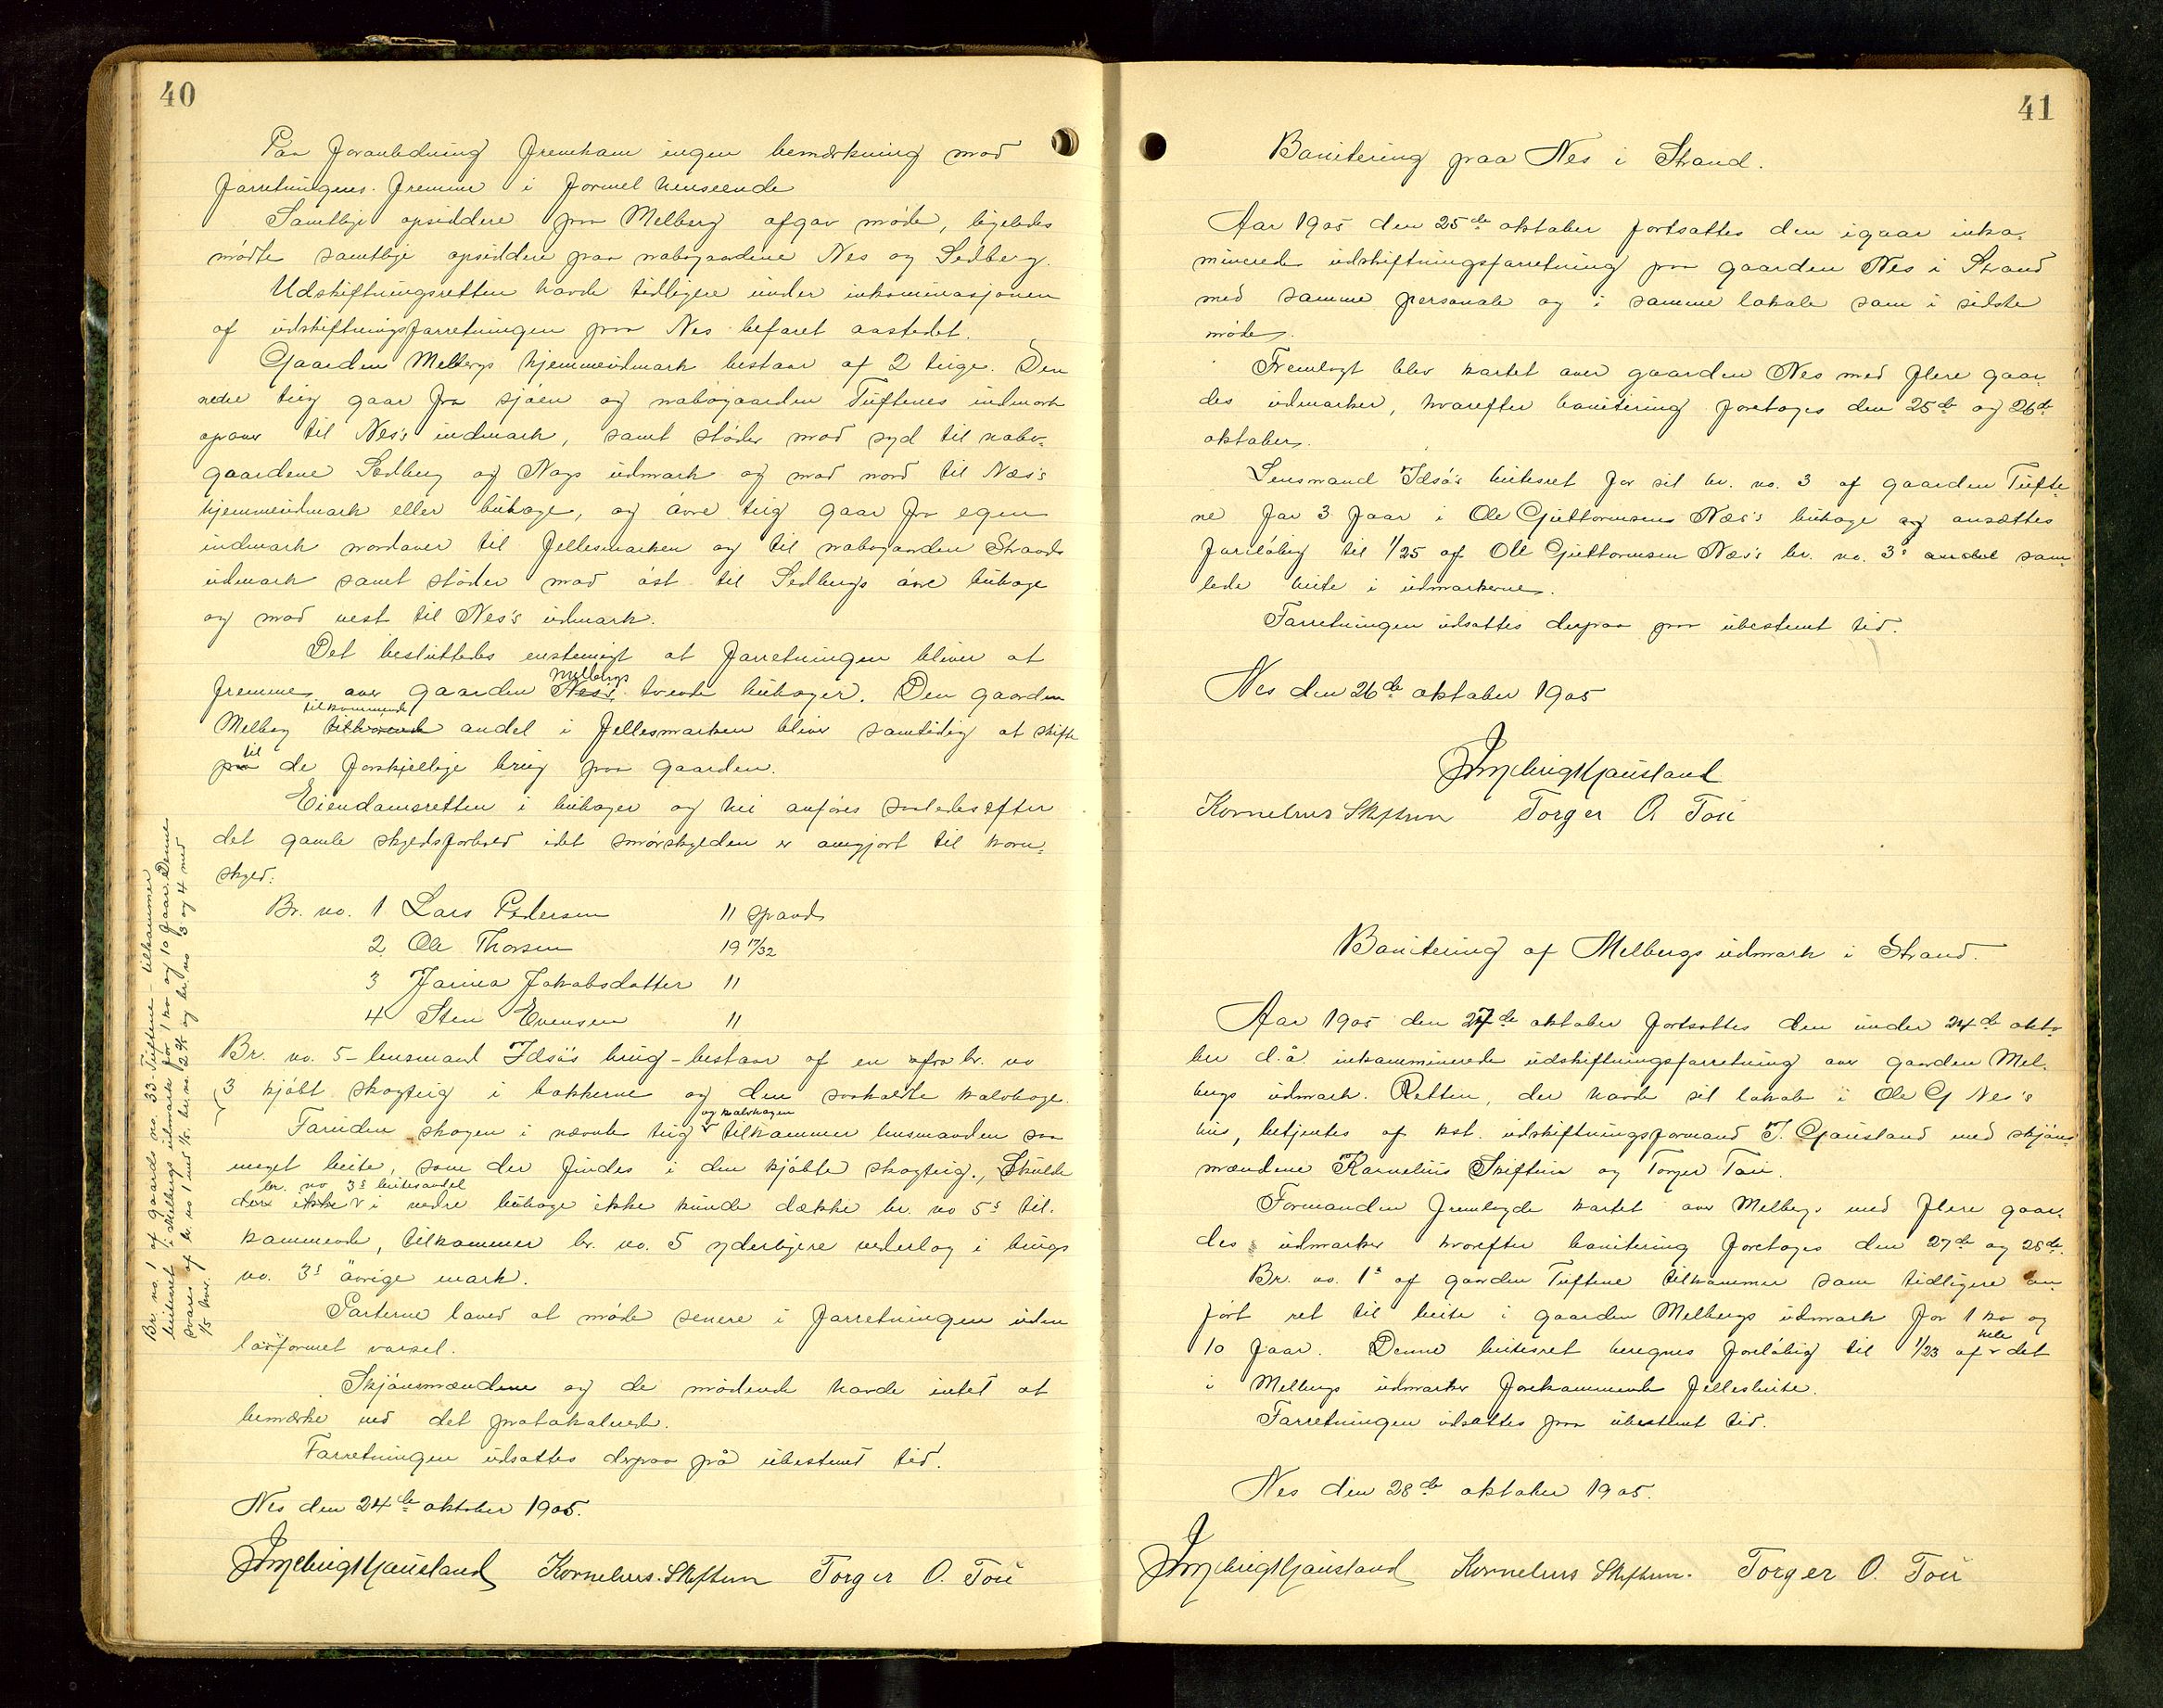 40
Paa foranledning fremkam ingen bemærkning mod
forretningens fremme i formel henseende
Samtlige opsiddere paa Melberg afgav møde, ligeledes
mødte samtlige opsiddere paa nabogaardene Nes og Sedberg.
Udskiftningsretten havde tidligere under inkominasjonen
af udskiftningsforretningen paa Nes befaret aastedet.
Gaarden Melbergs hjemmeudmark bestaar af 2 teige. Den
nedre teig gaar fra sjøen og nabogaarden Tuftenes indmark
opover til Nes's indmark, samt støder mod syd til nabo-
gaardene Sedberg og Nags udmark og mod nord til Næs's
hjemmeudmark eller buhage, og øvre teig gaar fra egen
indmark nordover til fellesmarken og til nabogaarden Strands
udmark samt støder mod øst til Sedbergs øvre buhage
og mod vest til Nes's udmark.
Det besluttedes enstemigt at forretningen bliver at
fremme over gaarden Nes's Melbergs tvende buhager. Den gaarden
Melberg tilhørende tilkommende andel i fellesmarken bliver samtidig at skifte
paa til de forskjellige brug paa gaarden.
Eiendomsretten i buhager og hei anføres saaledes efter
det gamle skyldsforhold idet smørskylden er omgjort til korn-
skyld:
Br. no. 1 Lars Pedersen 11 spand
2 Ole Thorsen 19 17/32
3 Jorina Jakobsdatter 11
4 Sten Evensen 11
Br. no. 5 - lensmand Idsø's brug - bestaar af en afra br. no
3 kjøbt skogteig i bakkerne og den saakaldte kalvhage.
Foruden skogen i nævnte teig og kalvhagen tilkommer lensmanden saa
meget beite, som der findes i den kjøbte skogteig. Skulde
der ikke br. no 3s beitesandel i nedre buhage ikke kunde dække br. no 5s til-
kommende, tilkommer br. no. 5 yderligere vederlag i brugs
no. 3s øvrige mark.
Parterne loved at møde senere i forretningen uden
lovformet varsel.
Skjønsmændene og de mødende havde intet at
bemærke ved det protokolerede.
Forretningen udsattes derpaa på ubestemt tid.
Nes den 24de oktober 1905.
Kornelius Skiftun Torger O. Tou
Br. no. 1 af gaards no. 33 - Tuftene - tilkommer
beitesret i Melbergs udmark for 1 ko og 10 faar. Denne
svares af br. no 1 med 1/5 br. no. 2 2/5 og br. no 3 og 4 med
1/5 hver.
41
Bonitering paa Nes i Strand.
Aar 1905 den 25de oktober fortsattes den igaar inko-
minerede udskiftningsforretning paa gaarden Nes i Strand
med samme personale og i samme lokale som i sidste
møde.
Fremlagt blev kartet over gaarden Nes med flere gaar-
des udmarker, hvorefter bonitering foretoges den 25de og 26de
oktober.
Lensmand Idsø's beitesret for sit br. no. 3 af gaarden Tufte-
ne for 3 faar i Ole Guttormsens Næs's buhage og ansættes
foreløbig til 1/25 af Ole Guttormsen Næs's br. no. 3s andel sam-
lede beite i udmarkerne.
Forretningen udsattes derpaa paa ubestemt tid.
Nes den 26de oktober 1905
Kornelius Skiftun Torger O. Tou
Bonitering af Melbergs udmark i Strand.
Aar 1905 den 27de oktober fortsattes den under 24de okto-
ber d.å. inkomminerede udskiftningsforretning over gaarden Mel-
bergs udmark. Retten, der havde sit lokale i Ole G Nes's
hus, betjentes af kst. udskiftningsformand J. Gausland med skjøns
mændene Kornelius Skiftun og Torger Tou.
Formanden fremlagde kartet over Melbergs med flere gaar-
des udmarker hvorefter bonitering foretoges den 27de og 28de.
Br. no. 1s af gaarden Tuftene tilkommer som tidligere an-
ført ret til beite i gaarden Melbergs udmark for 1 ko og
10 faar. Denne beitesret beregnes foreløbig til 1/23 af hele det
i Melbergs udmarker forekommende fellesbeite.
Forretningen udsattes paa ubestemt tid.
Nes den 28de oktober 1905.
Kornelius Skiftun. Torger O. Tou